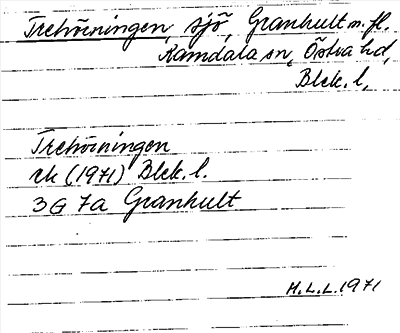 Trehörningen, sjö, Granhult m. fl.
Ramdala sn, Östra hd,
Blek. l,
Trehörningen
rk (1971) Blek. l.
3G 7a Granhult
M.L.L. 1971